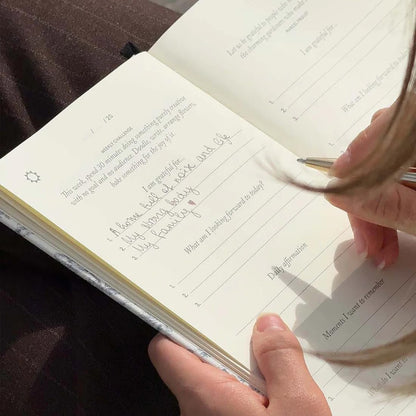 / /20
WEEKLY CHALLENGE
This week, spend 30 minutes doing something purely creative
with no goal and no audience. Doodle, write, arrange flowers,
bake something for the joy of it.
I am grateful for...
1. A home full of and life
2. My strong body
3. My family ♥
What am I looking forward to today?
1.
2.
3.
Daily affirmation
Moments I want to remember
Let us be grateful to people
the charming gardeners who make
MARCEL PROUST
I am grateful for...
1.
2.
3.
What am I looking
1.
2.